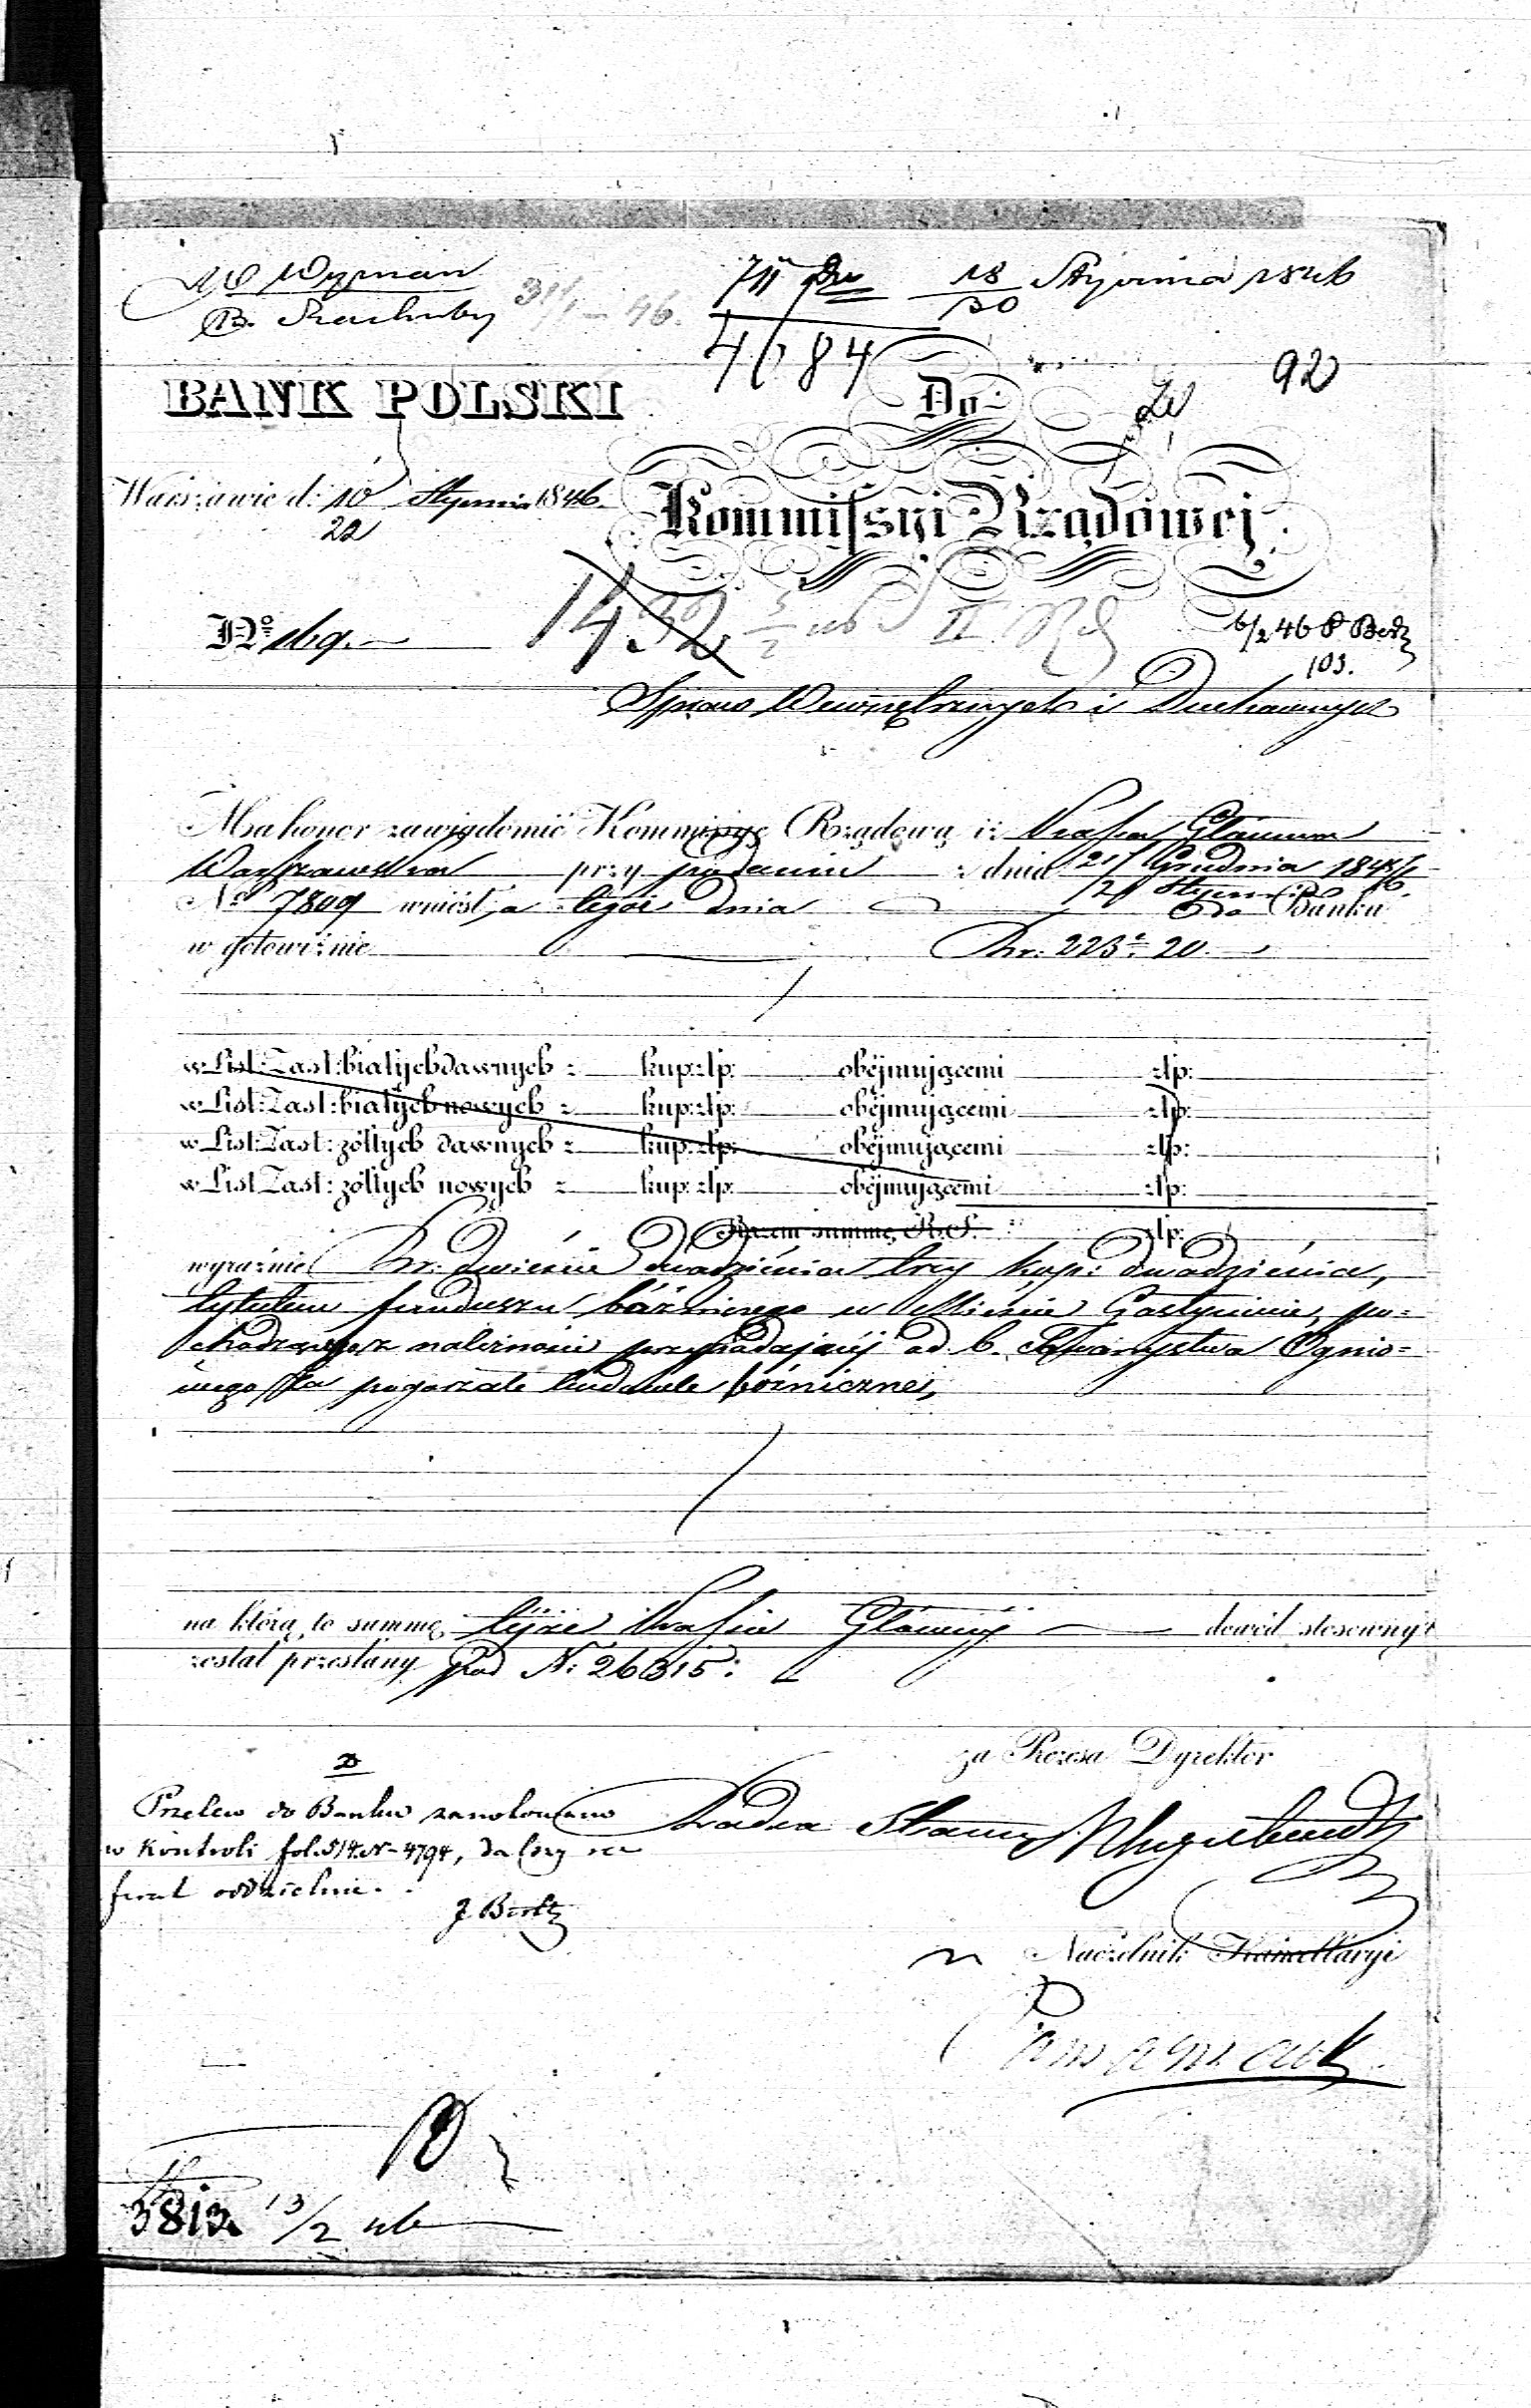 W Wyznań
B. Rachuby 31/1 – 46.
18/30 Stycznia 1846
4684
92
BANK POLSKI
Do
Warszawie d: 10/22 Stycznia 1846.
Kommissyi Rządowej
No 169.
1432
II
6/2 46
103.
Spraw Wewnętrznych i Duchownych
Ma honor zawiadomić Kommissyę Rządową iż Kassa Główna
Warszawska przy podaniu z dnia 21 Grudnia 1845/6
2 Stycznia
No 7809 wniosła tegoż dnia do Banku
w gotowiźnie Rsr: 223: 20.
w List: Zast: białych dawnych z kup: złp: obejmującemi złp:
w List: Zast: białych nowych z kup: złp: obejmującemi złp:
w List: Zast: żółtych dawnych z kup: złp: obejmującemi złp:
w List: Zast: żółtych nowych z kup: złp: obejmującemi złp:
Razem summę R. S. złp:
wyraźnie Rsr. dwieście dwadzieścia trzy kop: dwadzieścia,
tytułem funduszu bóżniczego w Mieście Gostyninie, po=
chodzącego z należności przypadającej od b. Towarzystwa Ognio=
wego za pogorzałe budowle bóżnicze,
na którą to summę tejże Kassie Głównej dowód stosowny
został przesłany pod N: 26315:
za Prezesa Dyrektor
Przelew do Banku zanotowano
w Kontroli fol. 514 N– 4794,
oddzielnie.
Radca Stanu
Naczelnik Kancellaryi
3813. 13/2 46